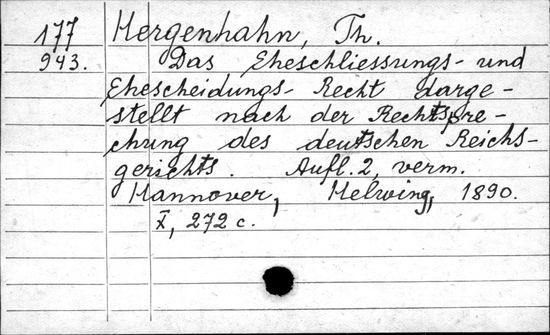 177 Hergenhahn, Th.
943. Das Eheschliessungs- und
Ehescheidungs- Recht darge-
stellt nach der Rechtspre-
chung des deutschen Reichs-
gerichts. Aufl. 2, verm.
Hannover, Helwing, 1890.
X, 272 c.